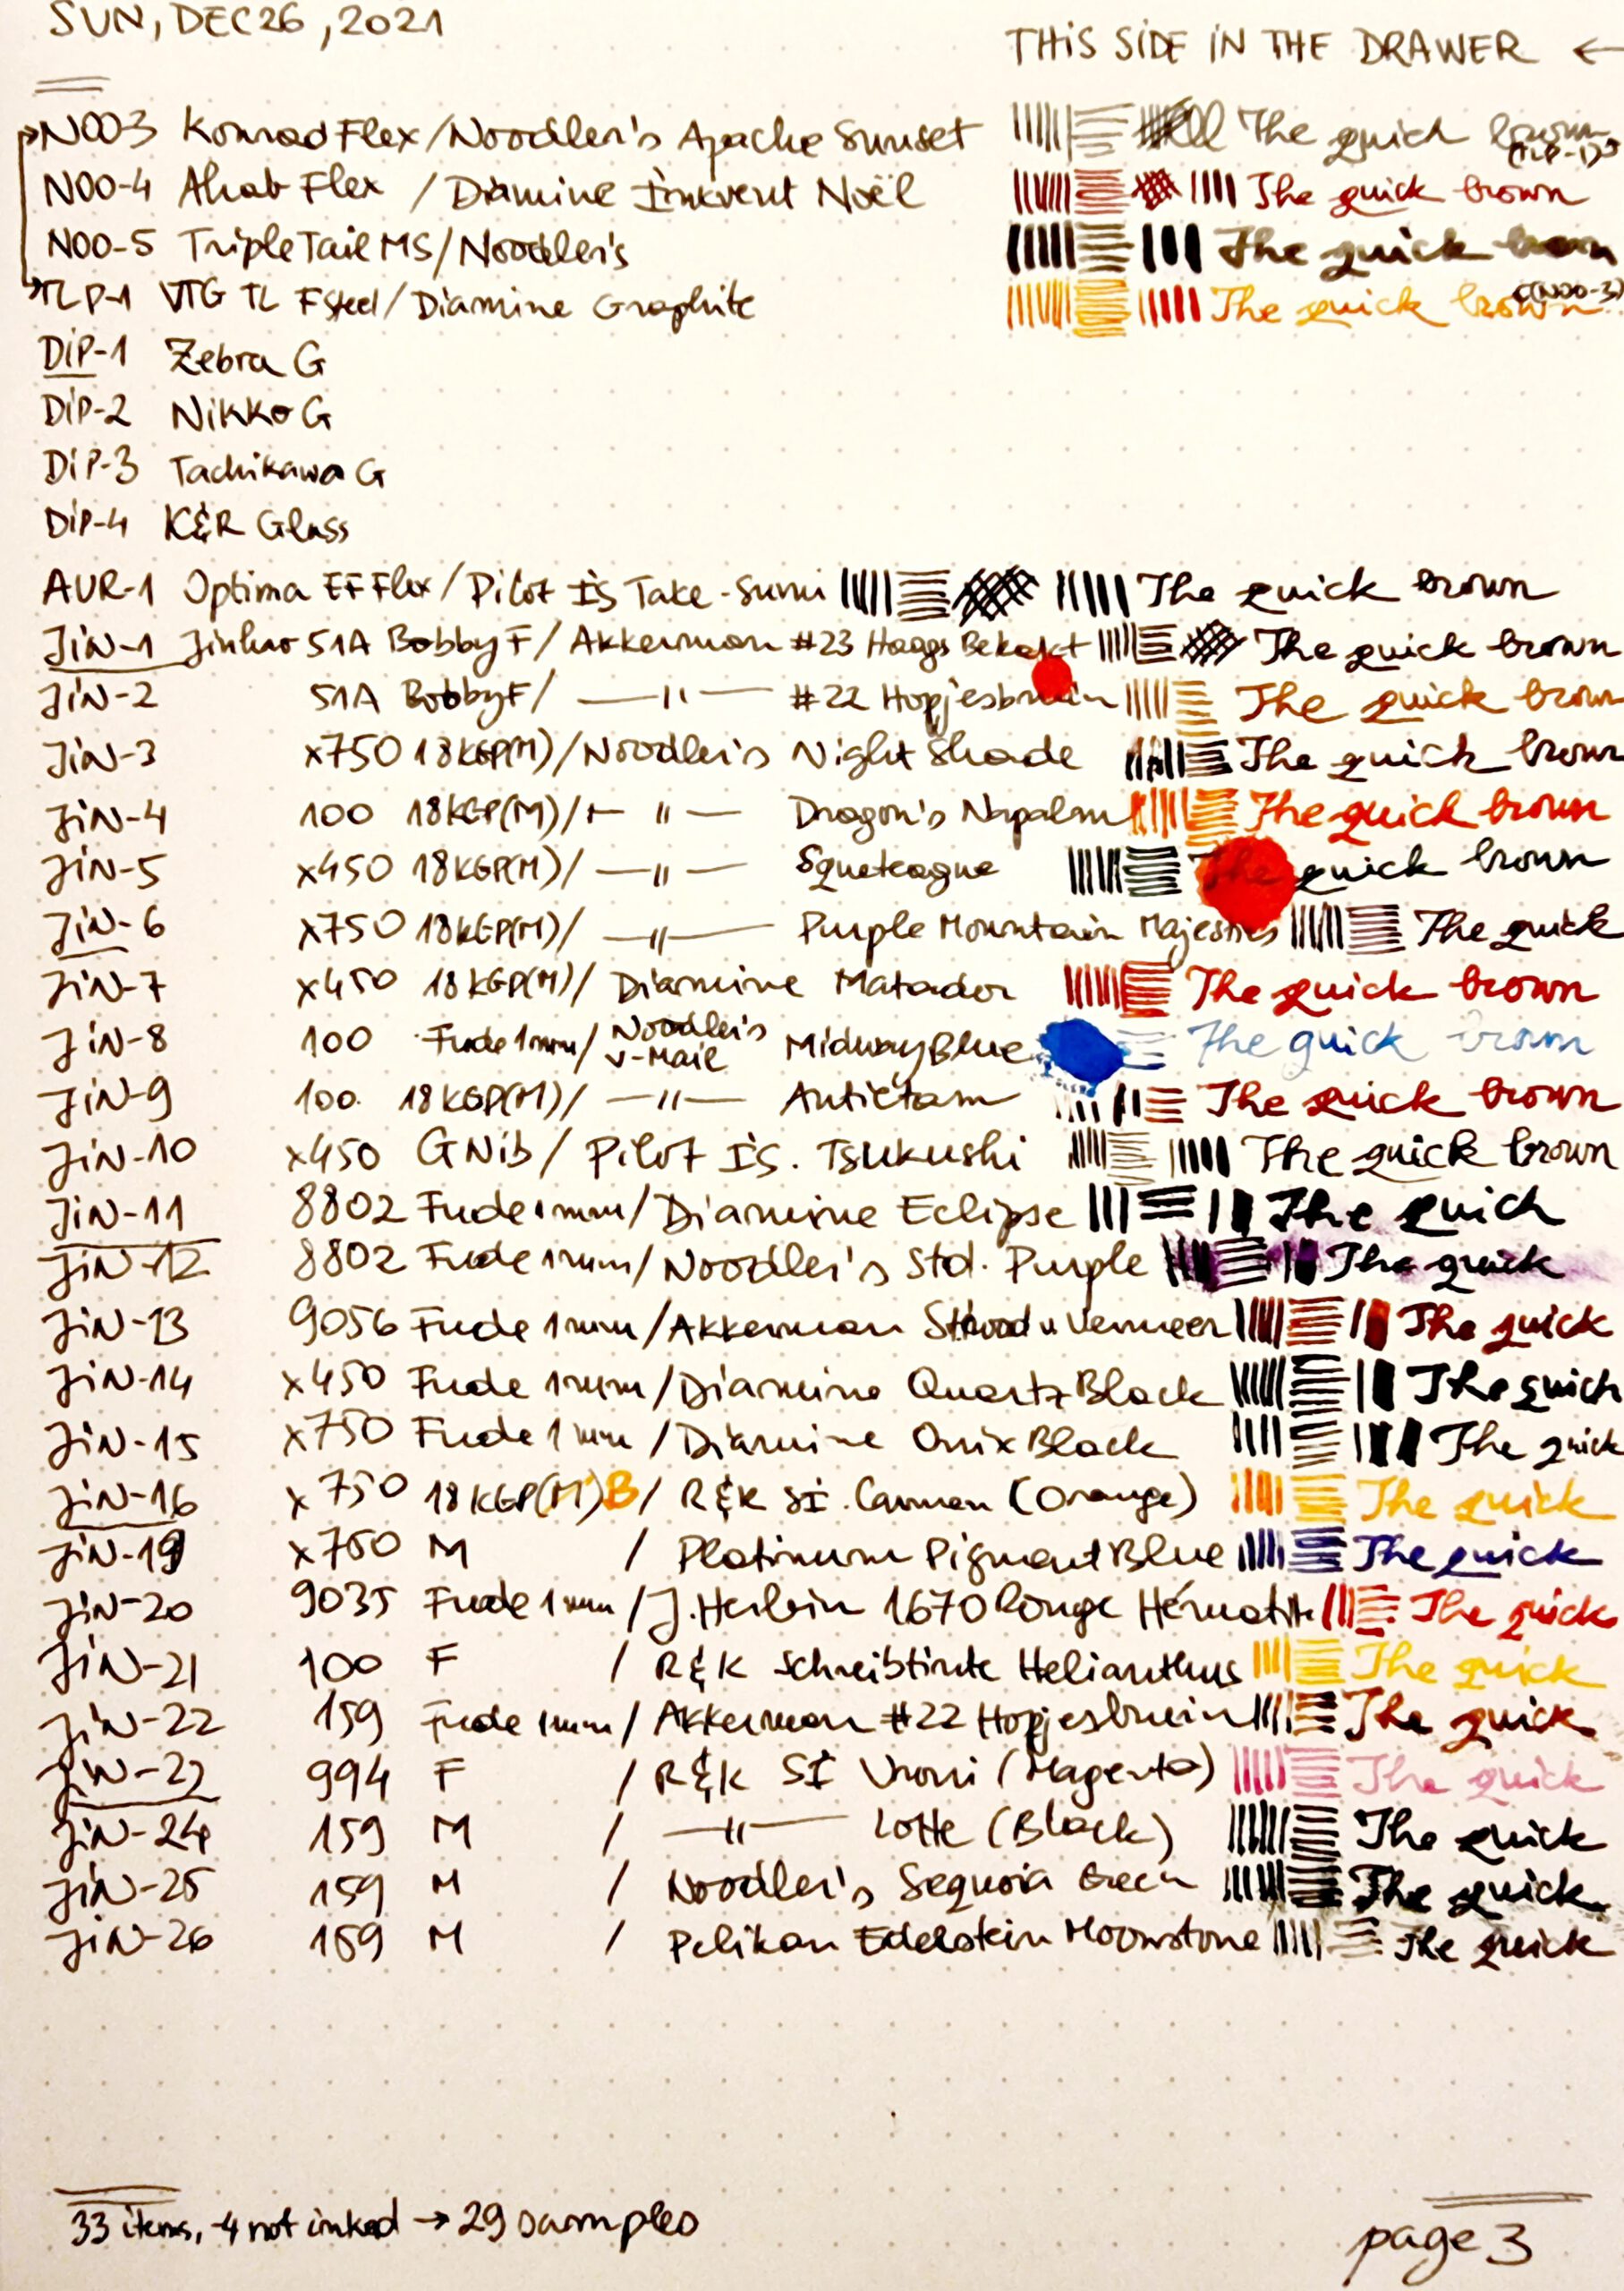 SUN, DEC 26, 2021
THIS SIDE IN THE DRAWER ←
NOO-3 Konrad Flex/Noodler's Apache Sunset The quick brown (TLP-1)
NOO-4 Ahab Flex / Diamine Inkvent Noël The quick brown
NOO-5 Triple Tail MS/Noodler's The quick brown
TLP-1 VTG TL F steel/Diamine Graphite The quick brown (NOO-3)
DIP-1 Zebra G
DIP-2 Nikko G
DIP-3 Tachikawa G
DIP-4 K&R Glass
AUR-1 Optima EF Flex/Pilot IS Take-Sumi The quick brown
JiN-1 Jinhao 51A Bobby F/ Akkerman #23 Haags Bekakt The quick brown
JiN-2 51A Bobby F/ —〃— #22 Hopjesbruin The quick brown
JiN-3 x750 18KGP(M)/Noodler's Night Shade The quick brown
JiN-4 100 18KGP(M)/ —〃— Dragon's Napalm The quick brown
JiN-5 x450 18KGP(M)/ —〃— Squeteague The quick brown
JiN-6 x750 18KGP(M)/ —〃— Purple Mountain Majesties The quick
JiN-7 x450 18KGP(M)/ Diamine Matador The quick brown
JiN-8 100 Fude 1mm/ Noodler's V-Mail Midway Blue The quick brown
JiN-9 100 18KGP(M)/ —〃— Antietam The quick brown
JiN-10 x450 G Nib/ Pilot IS. Tsukushi The quick brown
JiN-11 8802 Fude 1mm/Diamine Eclipse The quick
JiN-12 8802 Fude 1mm/Noodler's Std. Purple The quick
JiN-13 9056 Fude 1mm/Akkerman v Vermeer The quick
JiN-14 x450 Fude 1mm/Diamine Quartz Black The quick
JiN-15 x750 Fude 1mm /Diamine Onix Black The quick
JiN-16 x750 18KGP(M)B/ R&K SI. Carmen (Orange) The quick
JiN-19 x750 M / Platinum Pigment Blue The quick
JiN-20 9035 Fude 1mm /J.Herbin 1670 Rouge Hématite The quick
JiN-21 100 F / R&K Schreibtinte Helianthus The quick
JiN-22 159 Fude 1mm/ Akkerman #22 Hopjesbruin The quick
JiN-23 994 F / R&K SI Vroni (Magenta) The quick
JiN-24 159 M / —〃— Lotte (Black) The quick
JiN-25 159 M / Noodler's Sequoia Green The quick
JiN-26 159 M / Pelikan Edelstein Moonstone The quick
33 items, -4 not inked → 29 samples
page 3